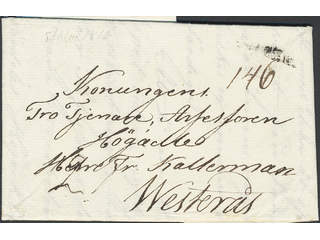 146
Konungens
Tro Tjenare, Assessoren
Högädle
Herr Fr. Kallerman
Westerås